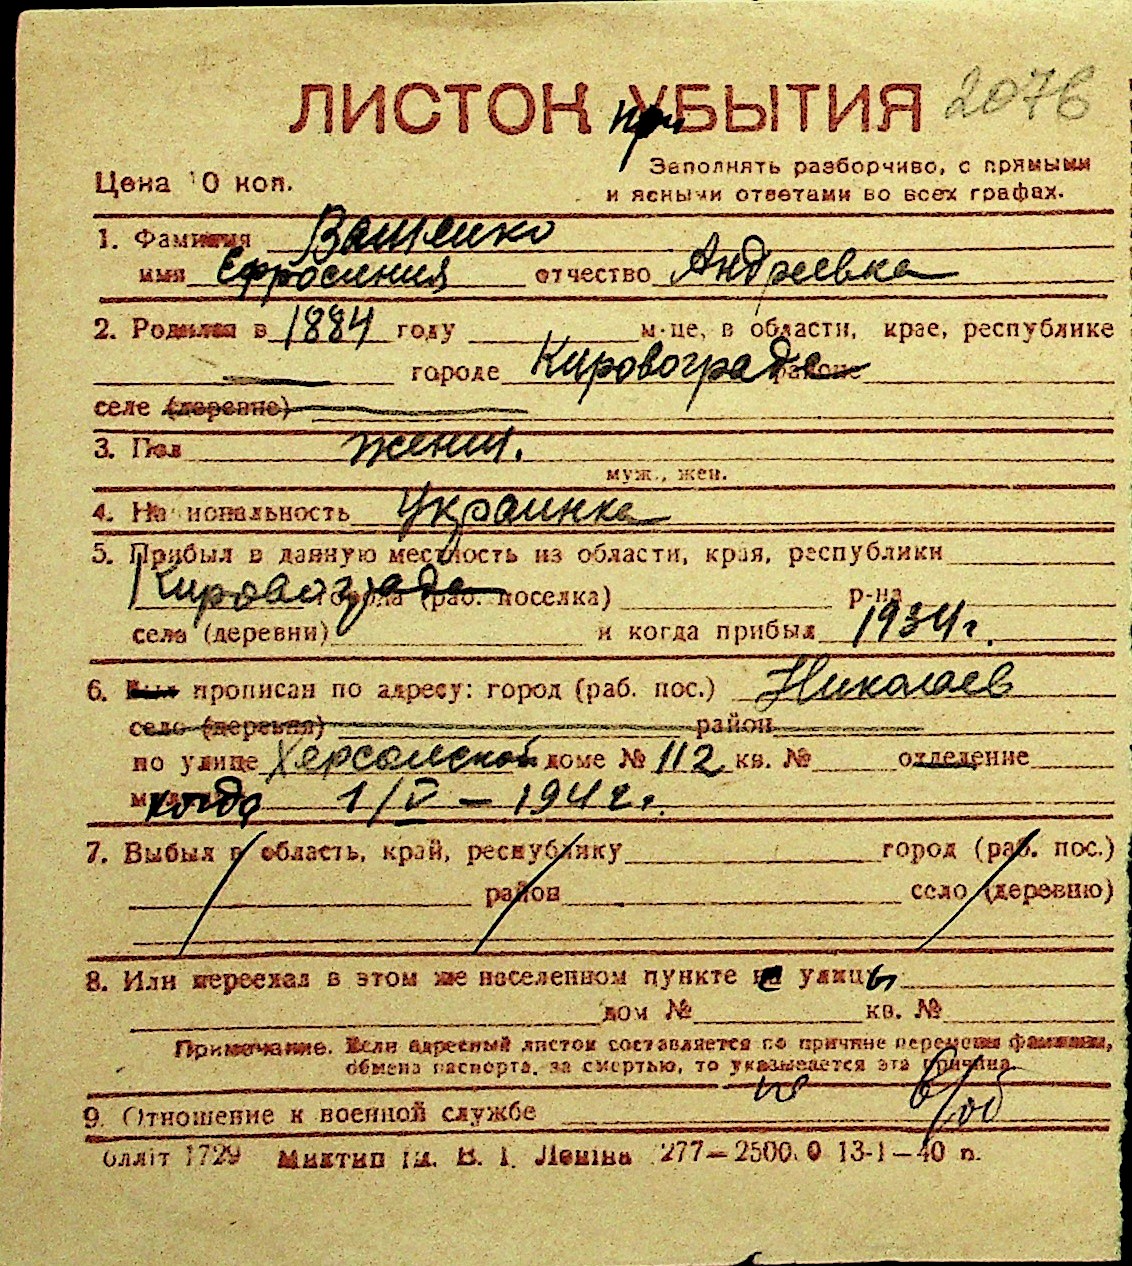 ЛИСТОК УБЫТИЯ 2076
при
Цена 10 коп.
Заполнять разборчиво, с прямыми
и ясными ответами во всех графах.
1. Фамилия Ващенко
имя Ефросиния отчество Андреевна
2. Родился в 1884 году м-це, в области, крае, республике
городе Кировограде районе
селе (деревне)
3. Пол женщ.
муж., жен.
4. Национальность Украинка
5. Прибыл в данную местность из области, края, республики
Кировограда города (раб. поселка) р-на
села (деревни) и когда прибыл 1934 г.
6. Был прописан по адресу: город (раб. пос.) Николаев
село (деревня) район
по улице Херсонской доме № 112 кв. № отделение
когда 1/V – 1942 г.
7. Выбыл в область, край, республику город (раб. пос.)
район село (деревню)
8. Или переехал в этом же населенном пункте с улицы
дом № кв. №
Примечание. Если адресный листок составляется по причине перемены фамилии,
обмена паспорта, за смертью, то указывается эта причина.
9. Отношение к военной службе не в/об
Оллiт 1729 Миктип iм. В. I. Ленiна 277–2500 13-1–40 п.